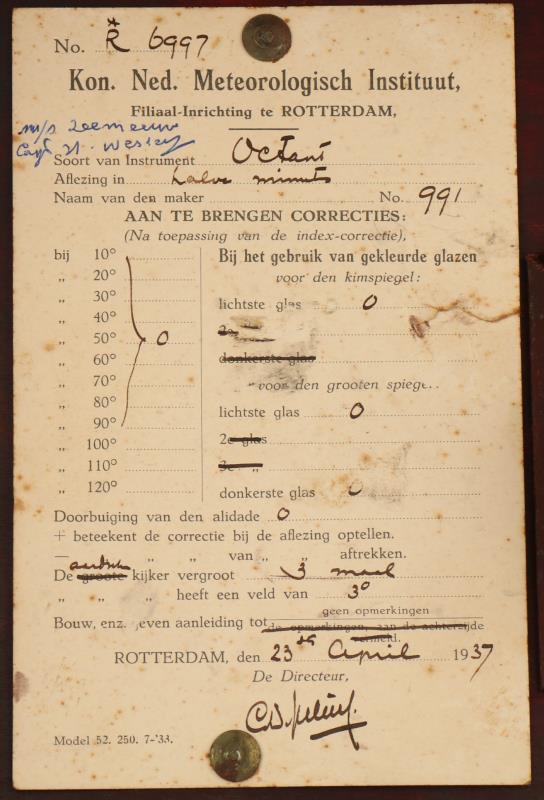 No. R 6997
Kon. Ned. Meteorologisch Instituut,
Filiaal-Inrichting te ROTTERDAM,
m/s Zeemeeuw
Capt H. Wessel
Soort van Instrument Octant
Aflezing in halve minuts
Naam van den maker No. 991
AAN TE BRENGEN CORRECTIES:
(Na toepassing van de index-correctie),
bij 10°
„ 20°
„ 30°
„ 40°
„ 50° 0
„ 60°
„ 70°
„ 80°
„ 90°
„ 100°
„ 110°
„ 120°
Bij het gebruik van gekleurde glazen
voor den kimspiegel:
lichtste glas 0
2e „
donkerste glas
voor den grooten spiege
lichtste glas 0
2e glas
3e „
donkerste glas 0
Doorbuiging van den alidade 0
+ beteekent de correctie bij de aflezing optellen.
— „ „ van „ „ aftrekken.
aardsche
De groote kijker vergroot 3 maal
„ „ „ heeft een veld van 3°
geen opmerkingen
Bouw, enz. geven aanleiding tot de opmerkingen, aan de achterzijde
vermeld.
ROTTERDAM, den 23sten April 1937
De Directeur,
Model 52. 250. 7-'33.